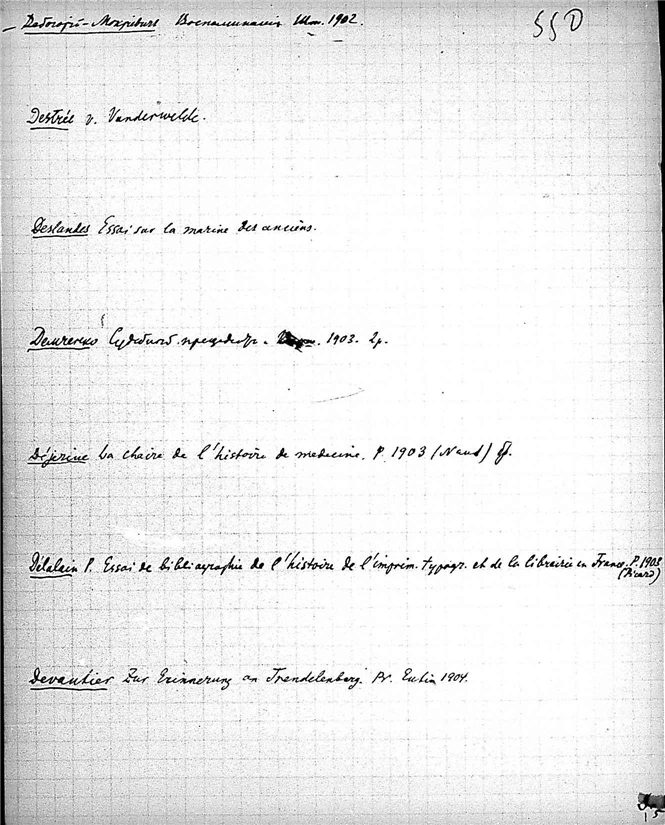 — Дебогорій-Мокріевичъ Воспоминанія Шт. 1902.
55D
Destrée v. Vanderwelde.
Deslandes Essai sur la marine des anciens.
Демченко Судебный прецедентъ. 1903. 2р.
Déjerine La chaire de l'histoire de medecine. P. 1903 (Naud)
Délalain P. Essai de bibliographie de l'histoire de l'imprim. typogr. et de la librairie en France. P. 1903
(Picard)
Devantier Zur Erinnerung an Trendelenberg. Pr. Eutin 1904.